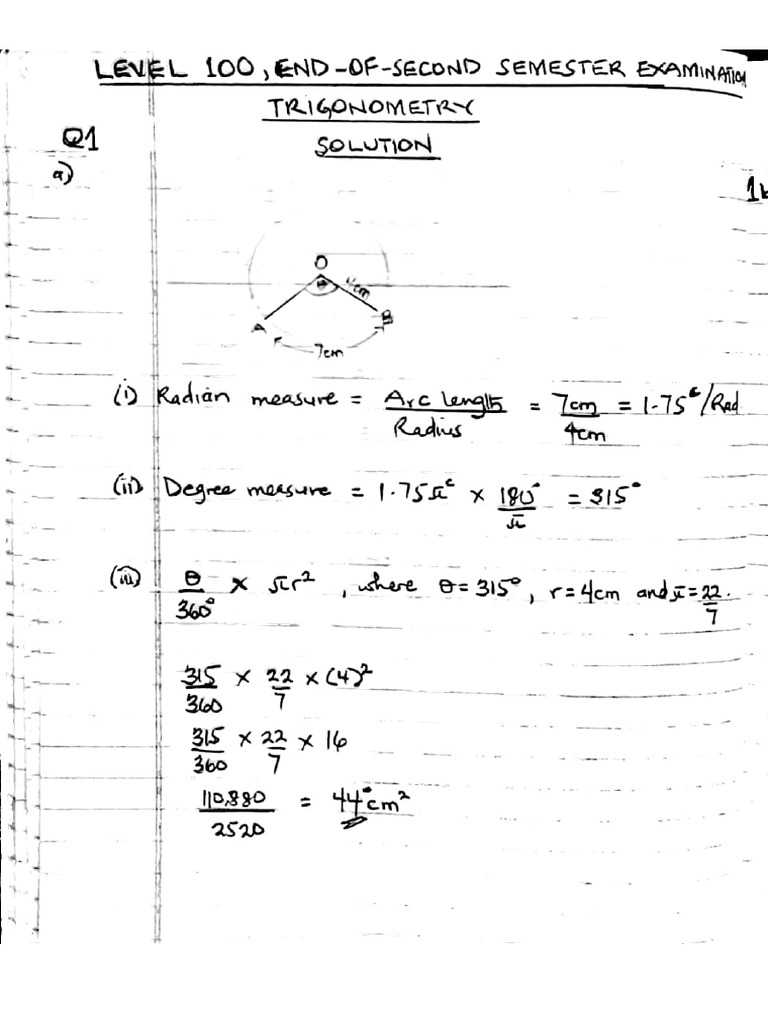 LEVEL 100, END-OF-SECOND SEMESTER EXAMINATION
TRIGONOMETRY
Q1
SOLUTION
a)
O
θ
4cm
A
B
7cm
(i) Radian measure = Arc length/Radius = 7cm/4cm = 1.75ᶜ/Rad
(ii) Degree measure = 1.75πᶜ × 180°/π = 315°
(iii) θ/360° × πr², where θ=315°, r=4cm and π=22/7.
315/360 × 22/7 × (4)²
315/360 × 22/7 × 16
110,880/2520 = 44°cm²